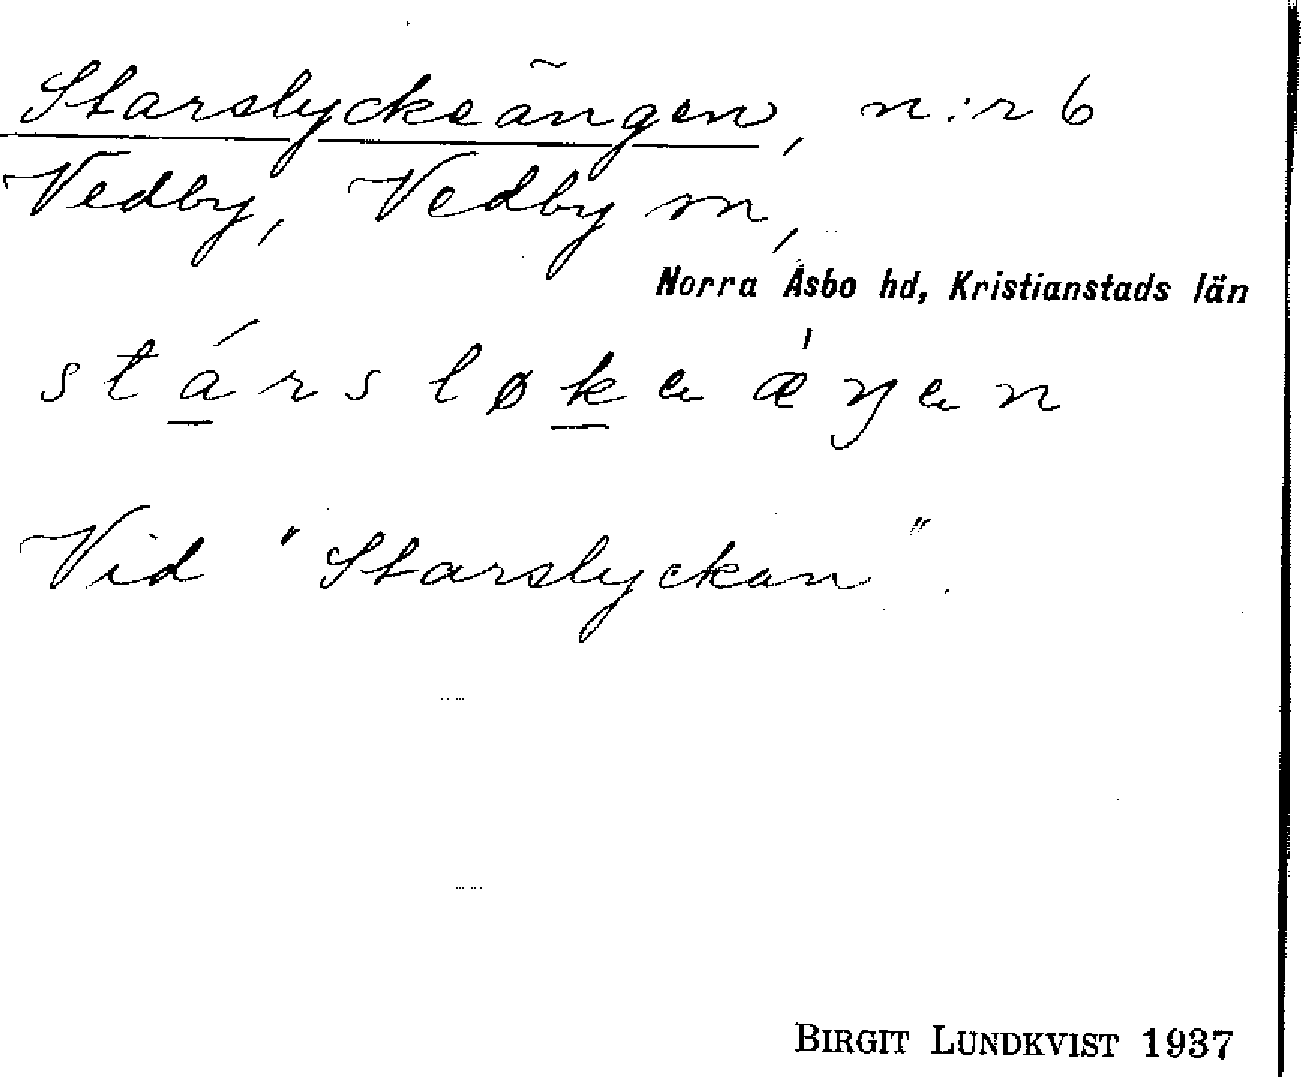 Starslyckeängen, n:r 6
Vedby, Vedby sn,
Norra Åsbo hd, Kristianstads län
stársløkeæ̍ŋen
Vid "Starslyckan".
BIRGIT LUNDKVIST 1937